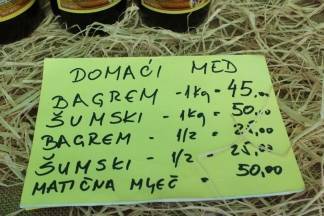 DOMAĆI MED
BAGREM - 1kg = 45,00
ŠUMSKI - 1kg = 50,00
BAGREM - 1/2 = 25,00
ŠUMSKI - 1/2 - 25,00
MATIČNA MLJEČ - 50,00